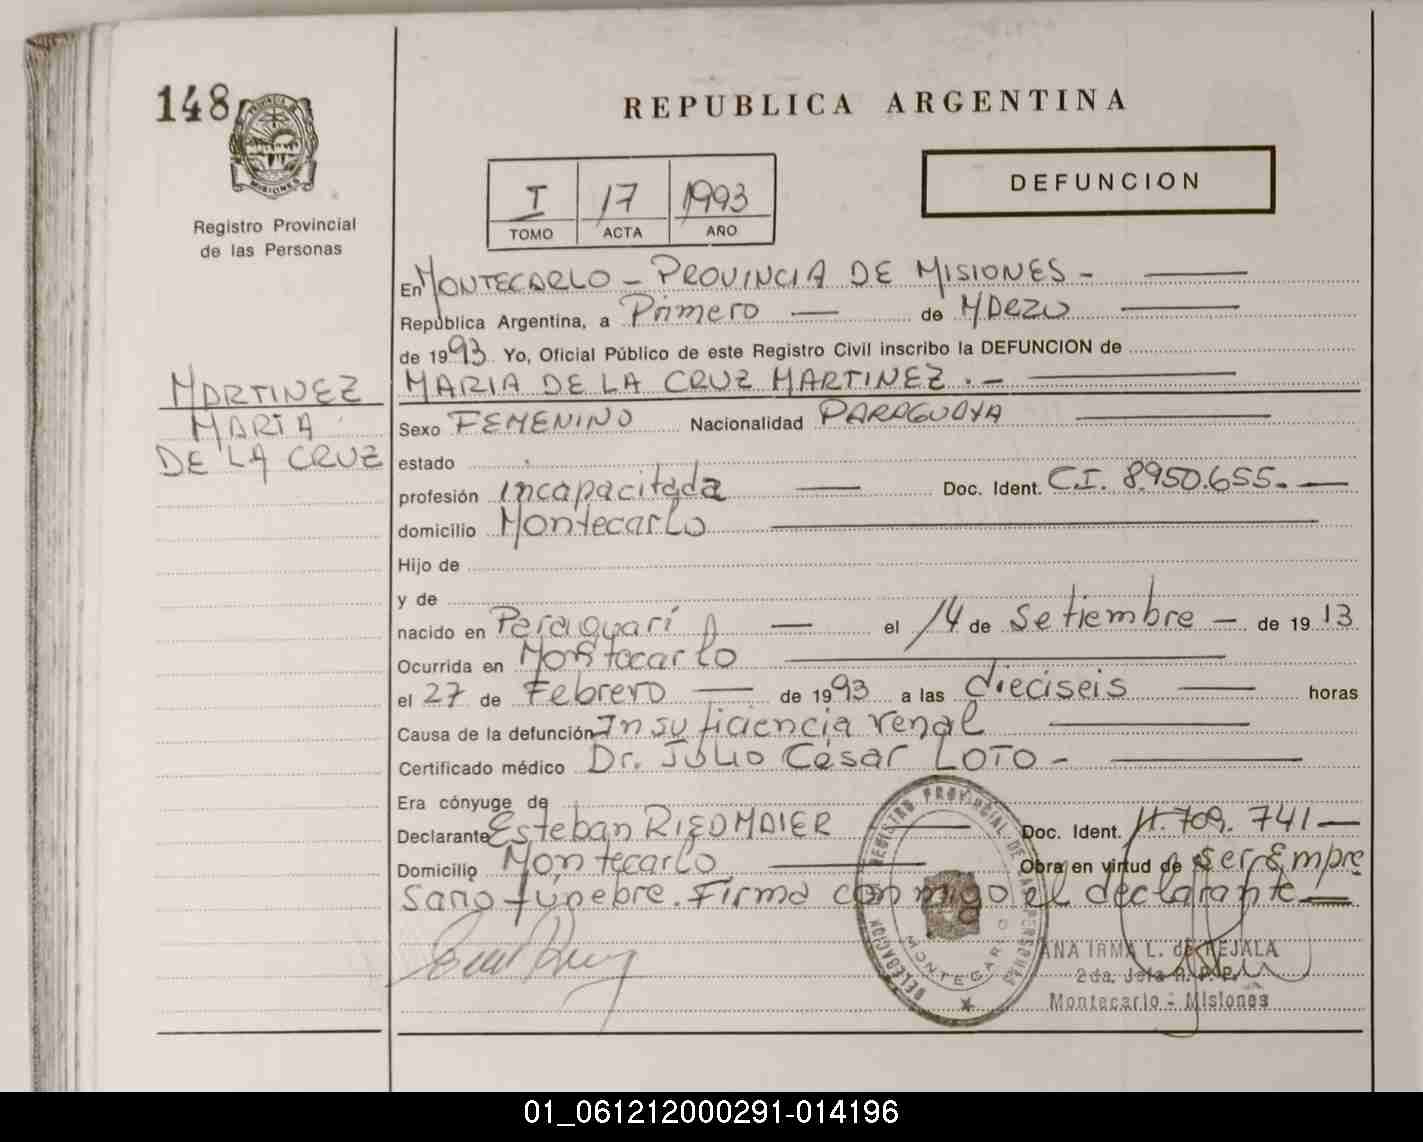 148
PROVINCIA DE
MISIONES
Registro Provincial
de las Personas
REPUBLICA ARGENTINA
I 17 1993
TOMO ACTA AÑO
DEFUNCION
En MONTECARLO - PROVINCIA DE MISIONES -
República Argentina, a Primero de MARZO
de 1993 Yo, Oficial Público de este Registro Civil inscribo la DEFUNCION de
MARIA DE LA CRUZ MARTINEZ . -
MARTINEZ
MARIA
DE LA CRUZ
Sexo FEMENINO Nacionalidad PARAGUAYA
estado
profesión incapacitada Doc. Ident. C.I. 8.950.655. -
domicilio Montecarlo
Hijo de
y de
nacido en Paraguarí el 14 de Setiembre - de 1913
Ocurrida en Montecarlo
el 27 de Febrero de 1993 a las dieciseis horas
Causa de la defunción Insuficiencia renal
Certificado médico Dr. JULIO César LOTO -
Era cónyuge de
Declarante Esteban RIEDMAIER Doc. Ident. 11.709.741 -
Domicilio Montecarlo Obra en virtud de ser Empre
sario fúnebre. Firma conmigo el declarante -
DELEGACION REGISTRO PROVINCIAL DE LAS PERSONAS
MONTECARLO
ANA IRMA L. de TEJALA
2da. Jefa R. P. P.
Montecarlo - Misiones
01_061212000291-014196